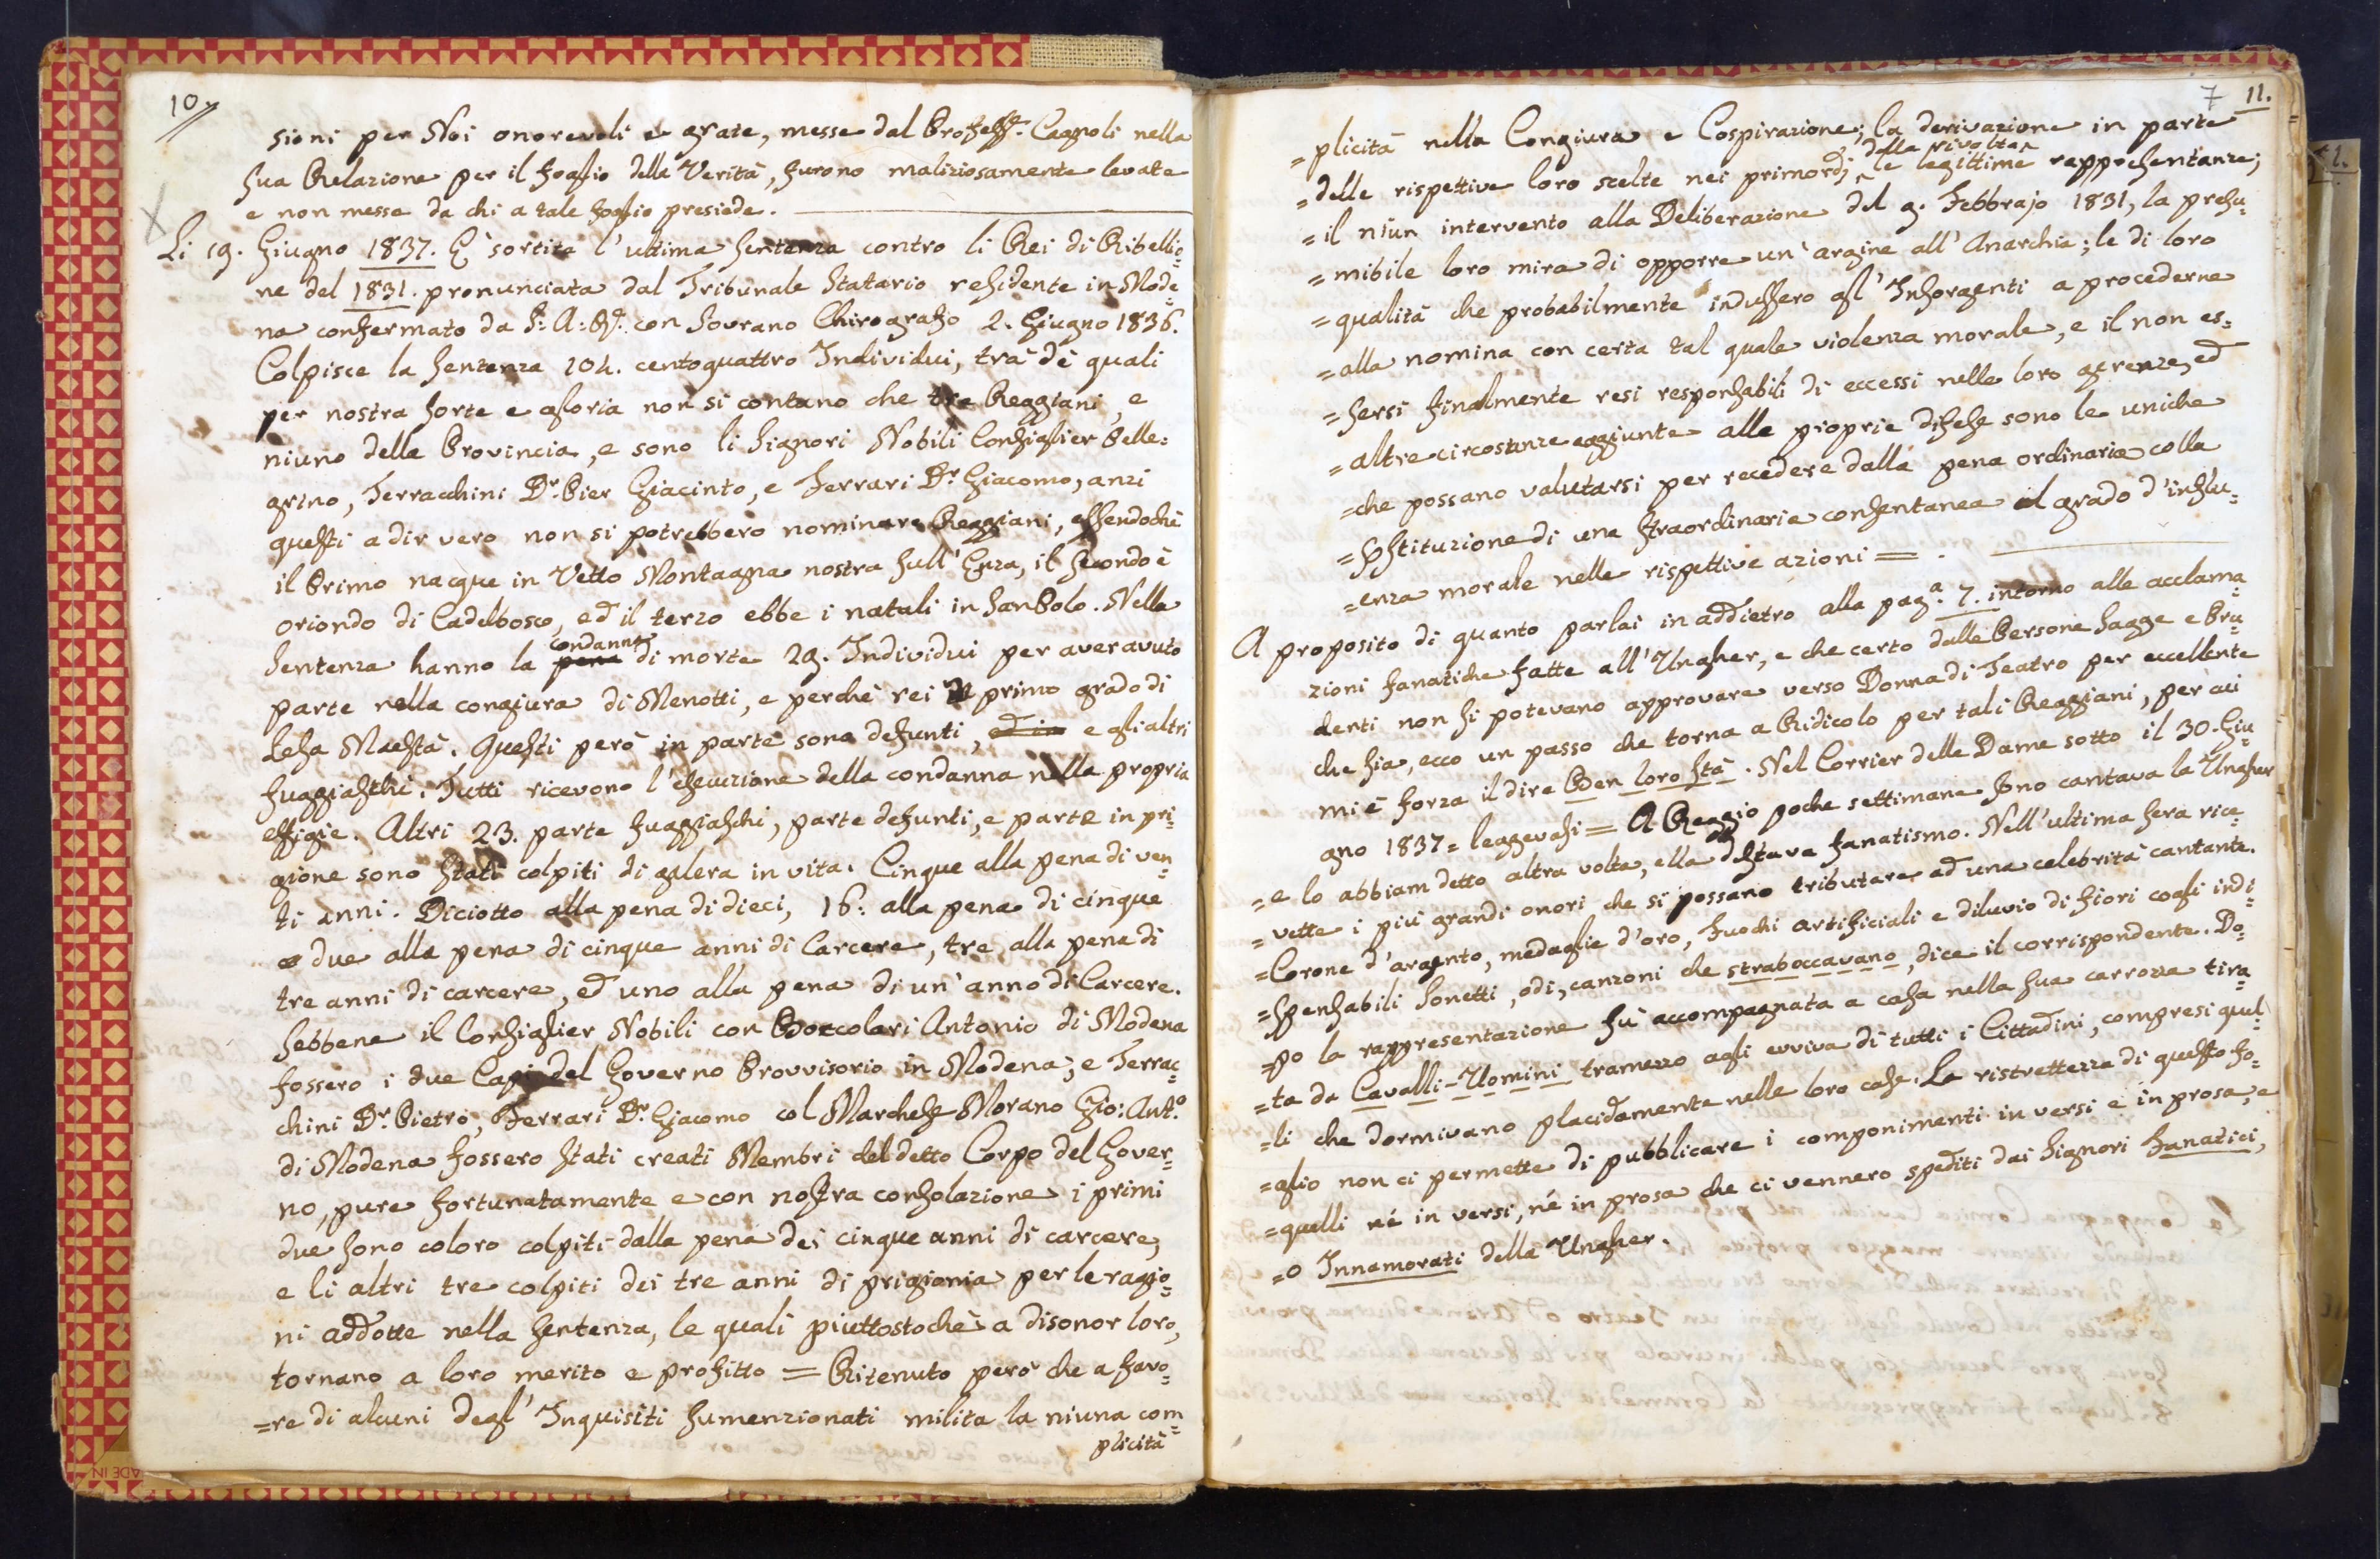 10
sioni per Noi onorevoli e grate, messe dal Professe. Cagnoli nella
sua Relazione per il foglio della Verità, furono maliziosamente levate
e non messe da chi a tale foglio presiede.
Li 19. Giugno 1837. È sortita l'ultima sentenza contro li Rei di Ribellio=
ne del 1831. pronunciata dal Tribunale Statario residente in Mode=
na confermato da S: A: R. con Sovrano Chirografo 2. Giugno 1836.
Colpisce la sentenza 104. centoquattro Individui, trà dè quali
per nostra sorte e gloria non si contano che tre Reggiani, e
niuno della Provincia, e sono li Signori Nobili Consiglier Pelle=
grino, Terracchini Dr. Pier Giacinto, e Ferrari Dr. Giacomo, anzi
questi a dir vero non si potrebbero nominare Reggiani, essendochè
il Primo nacque in Vetto Montagna nostra sull'Enza, il secondo è
oriondo di Cadelbosco, ed il terzo ebbe i natali in San Polo. Nella
condanna
sentenza hanno la pena di morte 29. Individui per aver avuto
parte nella congiura di Menotti, e perchè rei in primo grado di
Lesa Maestà. Questi però in parte sono defunti, ed in e gli altri
fuggiaschi. Tutti ricevono l'esecuzione della condanna nella propria
effigie. Altri 23. parte fuggiaschi, parte defunti, e parte in pri=
gione sono stati colpiti di galera in vita. Cinque alla pena di ven=
ti anni. Diciotto alla pena di dieci, 16: alla pena di cinque
e due alla pena di cinque anni di Carcere, tre alla pena di
tre anni di carcere, ed uno alla pena di un'anno di Carcere.
Sebbene il Consiglier Nobili con Borcolari Antonio di Modena
fossero i due Capi del Governo Provvisorio in Modena; e Terrac=
chini Dr. Pietro, Ferrari Dr. Giacomo col Marchese Morano Gio: Ant.º
di Modena fossero stati creati Membri del detto Corpo del Gover=
no, pure fortunatamente e con nostra consolazione i primi
due sono coloro colpiti dalla pena dei cinque anni di carcere,
e li altri tre colpiti dei tre anni di prigionia per le ragio=
ni addotte nella sentenza, le quali piuttostochè a disonor loro,
tornano a loro merito e profitto = Ritenuto però che a favo=
=re di alcuni degl'Inquisiti sumenzionati milita la niuna com=
plicità
7 11.
=plicità nella Congiura e Cospirazione; la derivazione in parte
della rivolta
=delle rispettive loro scelte nei primordj le legittime rappresentanze;
=il niun intervento alla Deliberazione del 9. Febbrajo 1831, la presu=
=mibile loro mira di opporre un'argine all'Anarchia; le di loro
=qualità che probabilmente indussero gl'Insorgenti a procederne
=alla nomina con certa tal quale violenza morale, e il non es=
=sersi finalmente resi responsabili di eccessi nelle loro gerenze, ed
=altre circostanze aggiunte alle proprie difese sono le uniche
=che possano valutarsi per recedere dalla pena ordinaria colla
=sostituzione di una straordinaria consentanea al grado d'influ=
=enza morale nelle rispettive azioni = .
A proposito di quanto parlai in addietro alla pag.ª 7. intorno alle acclama=
zioni fanatiche fatte all'Ungher, e che certo dalle Persone sagge e Pru=
denti non si potevano approvare verso Donna di Teatro per eccellente
che sia, ecco un passo che torna a Ridicolo per tali Reggiani, per cui
mi è forza il dire Ben loro stà. Nel Corrier delle Dame sotto il 30. Giu=
gno 1837= leggevasi = A Reggio poche settimane sono cantava la Ungher
=e lo abbiam detto altra volta, ella destava fanatismo. Nell'ultima sera rice=
=vette i più grandi onori che si possano tributare ad una celebrità cantante.
=Corone d'argento, medaglie d'oro, Fuochi artificiali e diluvio di fiori cogli indi=
=spensabili Sonetti, odi, canzoni che straboccavano, dice il corrispondente. Do=
=po la rappresentazione fù accompagnata a casa nella sua carrozza tira=
=ta da Cavalli-Uomini tramezzo agli evviva di tutti i Cittadini, compresi quel=
=li che dormivano placidamente nelle loro case. La ristrettezza di questo fo=
=glio non ci permette di pubblicare i componimenti in versi e in prosa, e
=quelli né in versi, né in prosa che ci vennero spediti dai Signori Fanatici,
=o Innamorati della Ungher.